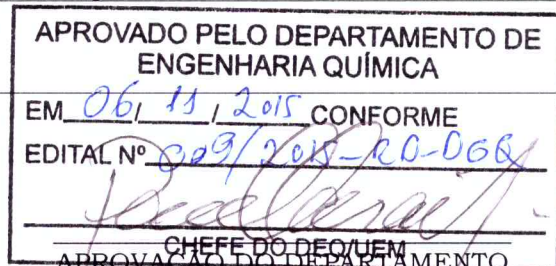 APROVADO PELO DEPARTAMENTO DE
ENGENHARIA QUÍMICA
EM 06 / 11 / 2015 CONFORME
EDITAL Nº 009/2015-RD-DEQ
CHEFE DO DEQ/UEM
APROVAÇÃO DO DEPARTAMENTO